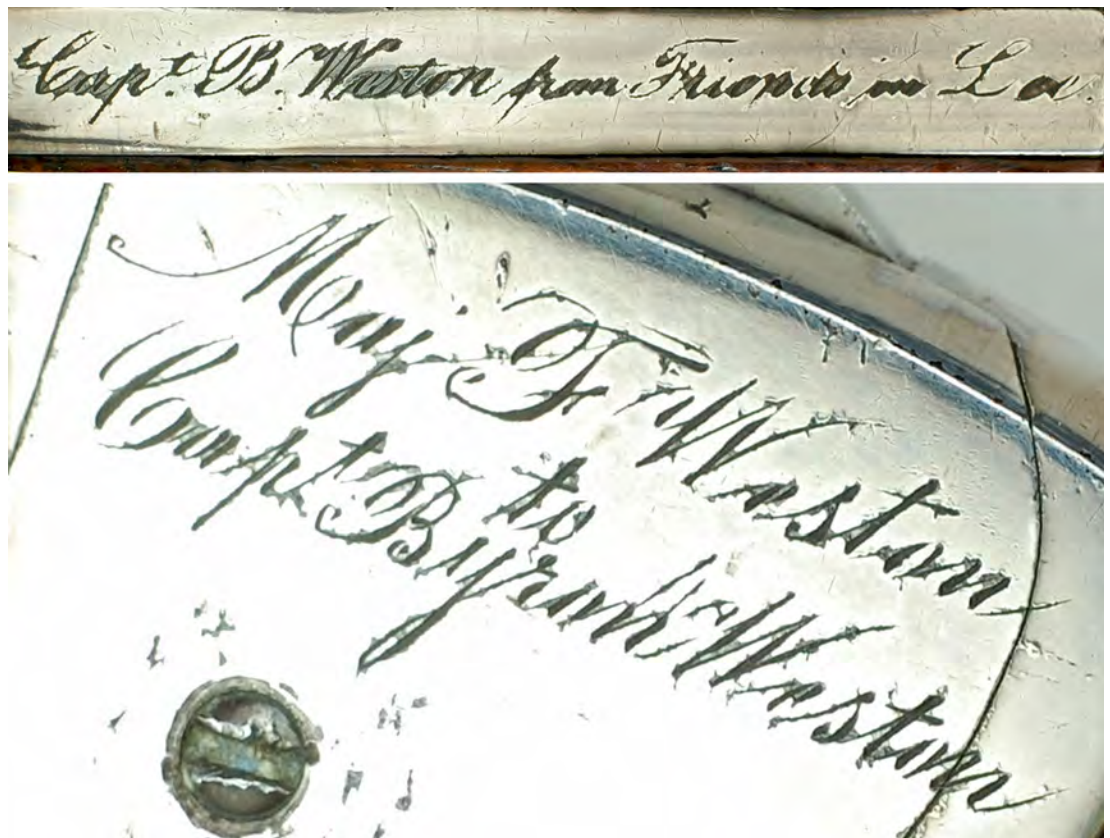 Capt. B. Weston from Friends in Lee.
Maj. F. Weston
to
Capt Byron Weston